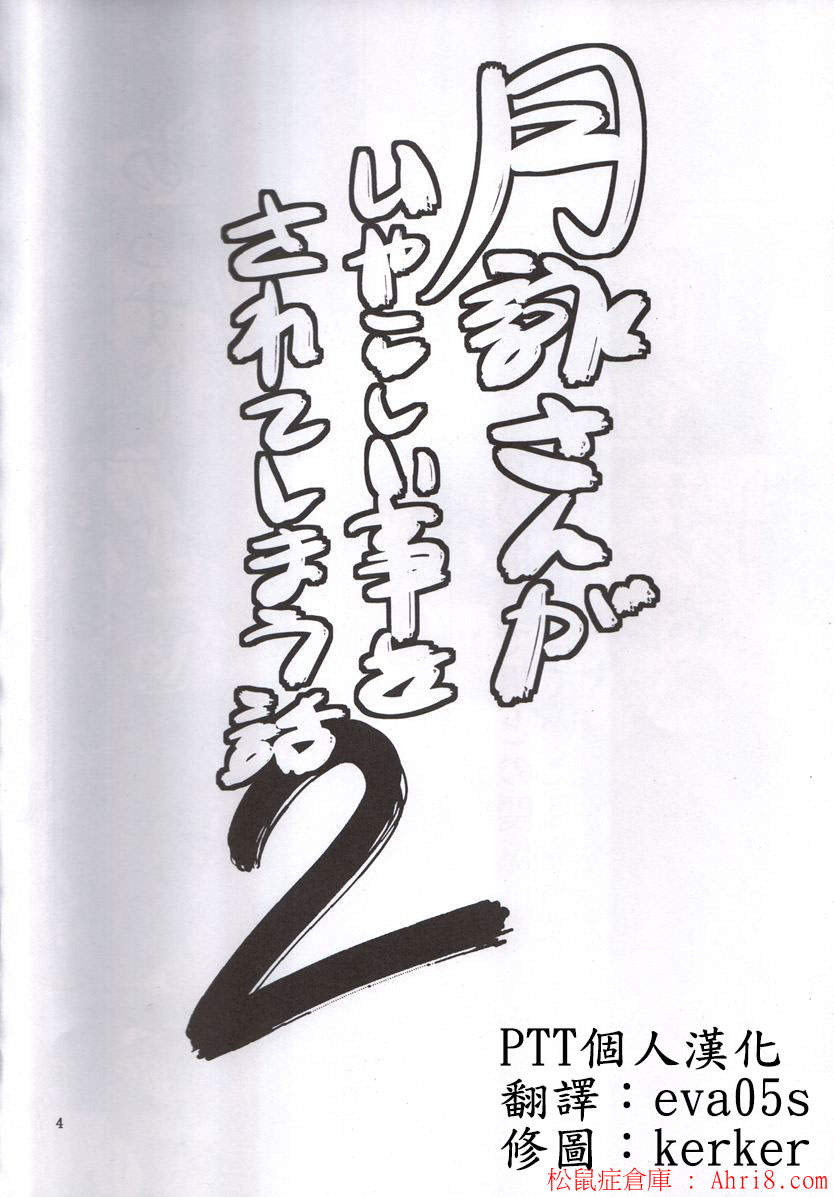 月詠さんが
いやらしい事を
されてしまう話
2
4
PTT個人漢化
翻譯：eva05s
修圖：kerker
松鼠症倉庫 : Ahri8.com